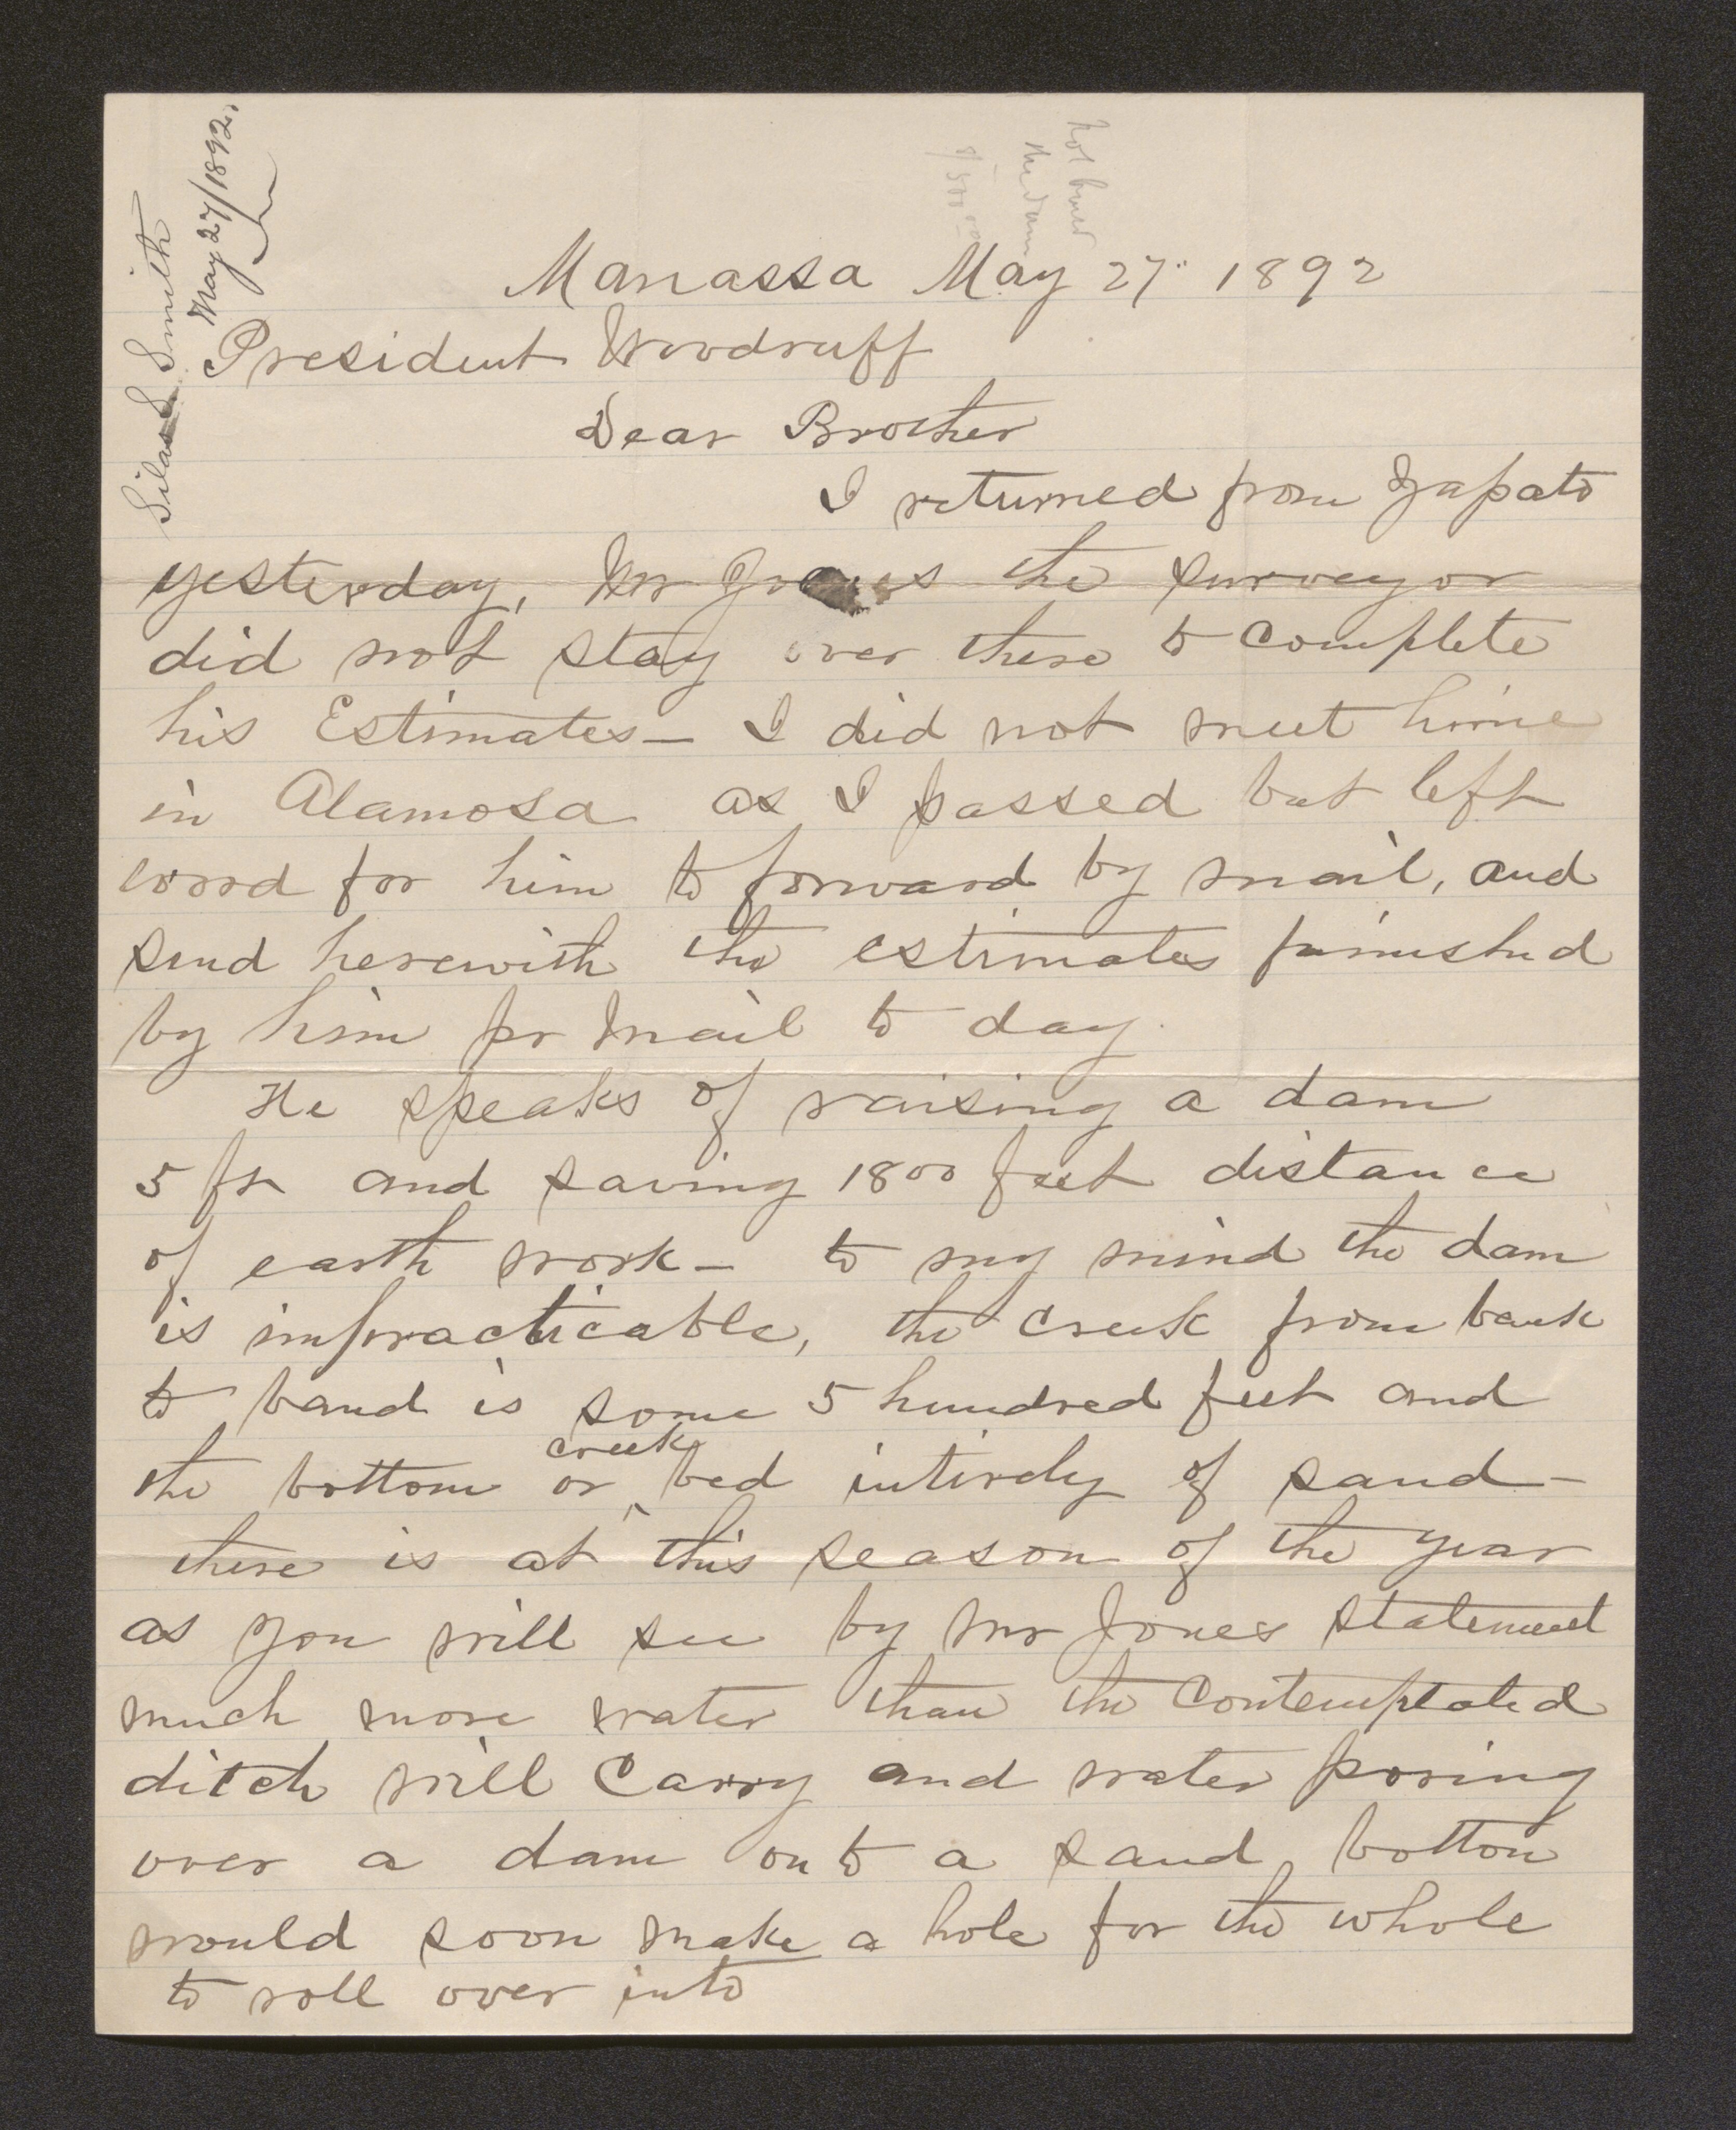 Silas S. Smith
May 27/1892,
not build
the dam
$500.00
Manassa May 27" 1892
President Woodruff
Dear Brother
I returned from Zapato
yesterday, Mr Jones the surveyor
did not stay over there to complete
his Estimates— I did not meet him
in Alamosa as I passed but left
word for him to forward by mail, and
send herewith the estimates furnished
by him pr mail to day.
He speaks of raising a dam
5 ft and saving 1800 feet distance
of earth work— to my mind the dam
is impracticable, the creek from bank
to band is some 5 hundred feet and
creek
the bottom or ^ bed intirely of sand—
there is at this season of the year
as you will see by Mr Jones statement
much more water than the contemplated
ditch will carry and water poring
over a dam on to a sand botton
would soon make a hole for the whole
to roll over into